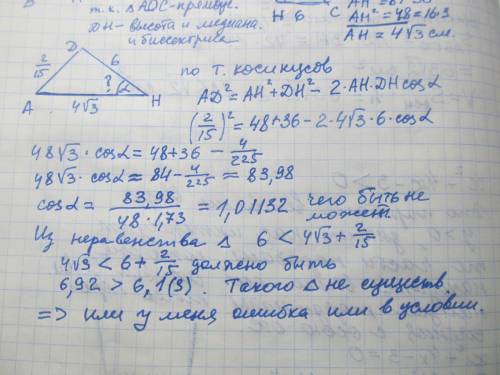 т.к. △ ADC-прямоуг.
DH-высота и медиана.
и биссектриса
H 6 C
AH² = 48 = 16·3
AH = 4√3 см.
D
2/15 6
? α
A 4√3 H
по т. косинусов
AD² = AH² + DH² - 2·AH·DH cosα
(2/15)² = 48+36 - 2·4√3·6·cosα
48√3 · cosα = 48+36 - 4/225
48√3 · cosα = 84 - 4/225 = 83,98
cosα = 83,98 / 48·1,73 = 1,01132 чего быть не может
Из неравенства △ 6 < 4√3 + 2/15
4√3 < 6 + 2/15 должно быть
6,92 > 6,1(3). Такого △ не существ.
=> или у меня ошибка или в условии.